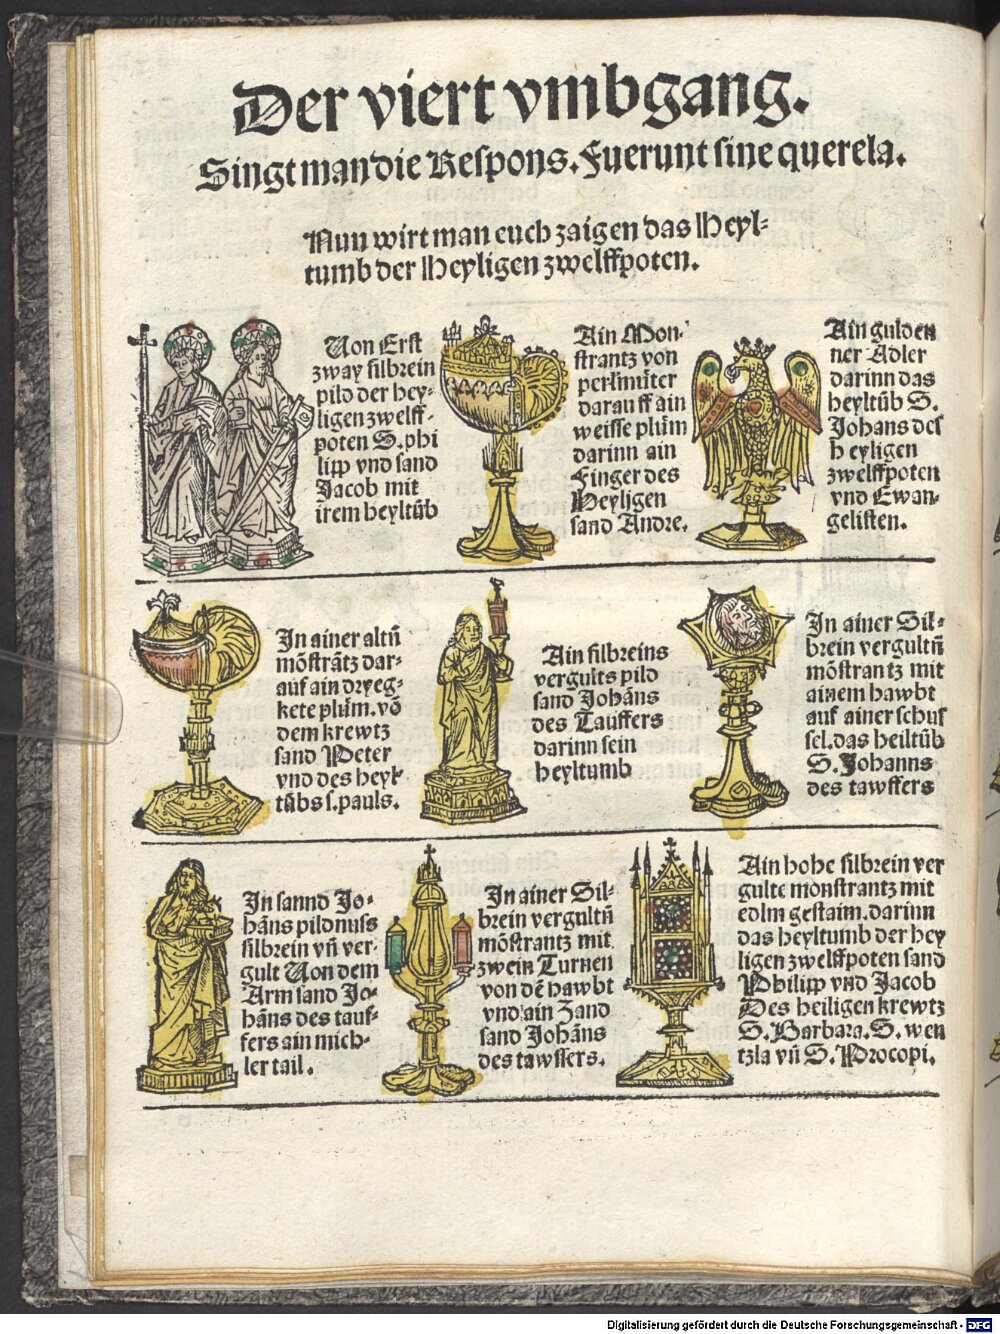 Der viert vmbgang.
Singt man die Respons. Fuerunt sine querela.
Nun wirt man euch zaigen das Heyl-
tumb der Heyligen zwelffpoten.
Uon Erst
zway silbrein
pild der hey-
ligen zwelff-
poten S. phi
lipp vnd sand
Jacob mit
irem heyltũb
Ain Mon-
strantz von
perlmuter
darauff ain
weisse plům
darinn ain
Finger des
Heyligen
sand Andre.
Ain gulden
ner Adler
darinn das
heyltũb S.
Johans des
heyligen
zwelffpoten
vnd Ewan-
gelisten.
In ainer altñ
mõstrãtz dar-
auf ain dreyeg-
kete plům. võ
dem krewtz
sand Peter
vnd des heyl
tũbs s. pauls.
Ain silbreins
vergults pild
sand Johãns
des Tauffers
darinn sein
heyltumb
In ainer Sil-
brein vergultñ
mõstrantz mit
ainem hawbt
auf ainer schus
sel. das heiltũb
S. Johanns
des tawffers
In sannd Jo-
hãns pildnuss
silbrein vñ ver-
gult Uon dem
Arm sand Jo-
hãns des tauf-
fers ain mich-
ler tail.
In ainer Sil-
brein vergultñ
mõstrantz mit
zwein Turnen
von dẽ hawbt
vnd ain Zand
sand Johãns
des tawffers.
Ain hohe silbrein ver
gulte monstrantz mit
edlm gestaim. darinn
das heyltumb der hey
ligen zwelffpoten sand
Philipp vnd Jacob
Des heiligen krewtz
S. Barbara. S. wen
tzla vñ S. Procopi.
Digitalisierung gefördert durch die Deutsche Forschungsgemeinschaft - DFG